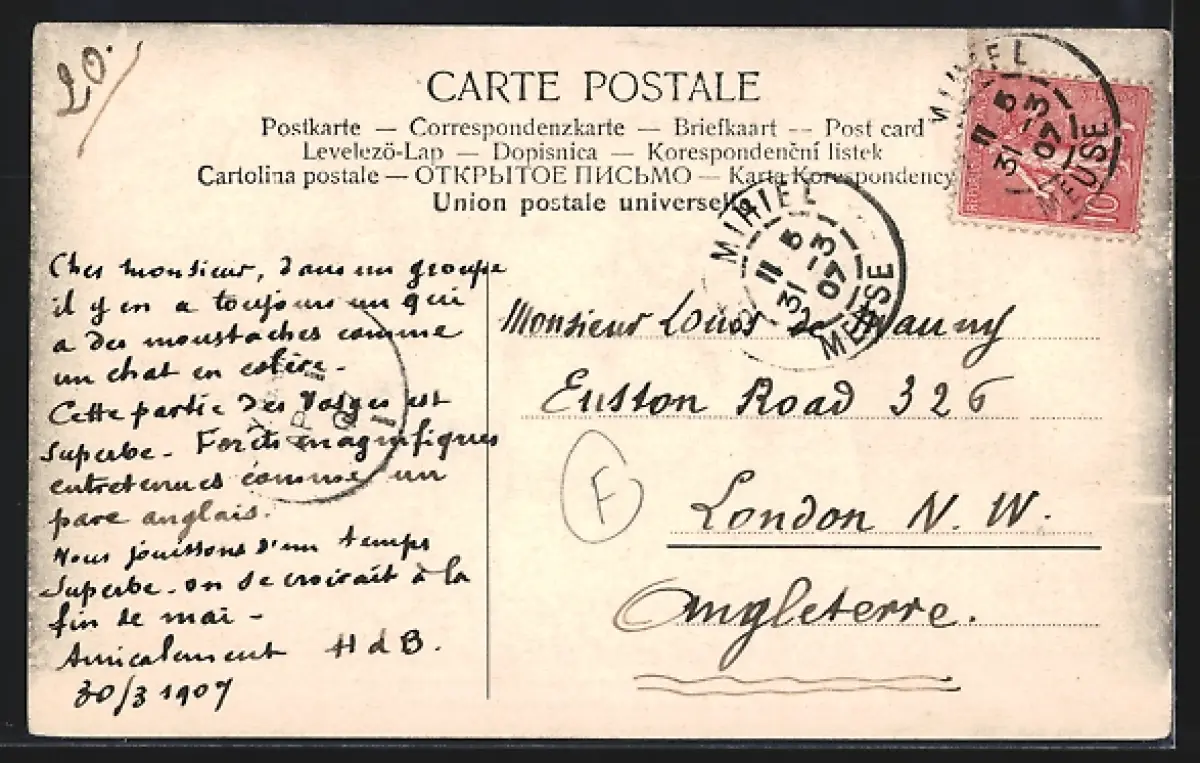 20.
CARTE POSTALE
Postkarte — Correspondenzkarte — Briefkaart -- Post card
Levelező-Lap — Dopisnica — Korespondenční listek
Cartolina postale — ОТКРЫТОЕ ПИСЬМО — Karta Korespondency
Union postale universelle
MEUSE
11 5
31 -3
07
10
MEUSE
11 5
31 -3
07
Cher monsieur, dans un groupe
il y en a toujours un qui
a des moustaches comme
un chat en colère -
Cette partie des Vosges est
superbe - Forêts magnifiques
entretenues comme un
parc anglais.
Nous jouissons d'un temps
superbe - on se croirait à la
fin de mai -
Amicalement H d B.
30/3 1907
Monsieur Louis de
Euston Road 326
F
London N. W.
Angleterre.